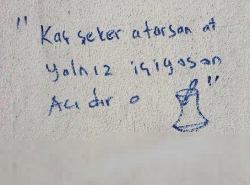 " Kaç şeker atarsan at
yalnız içiyosan
Acıdır o "